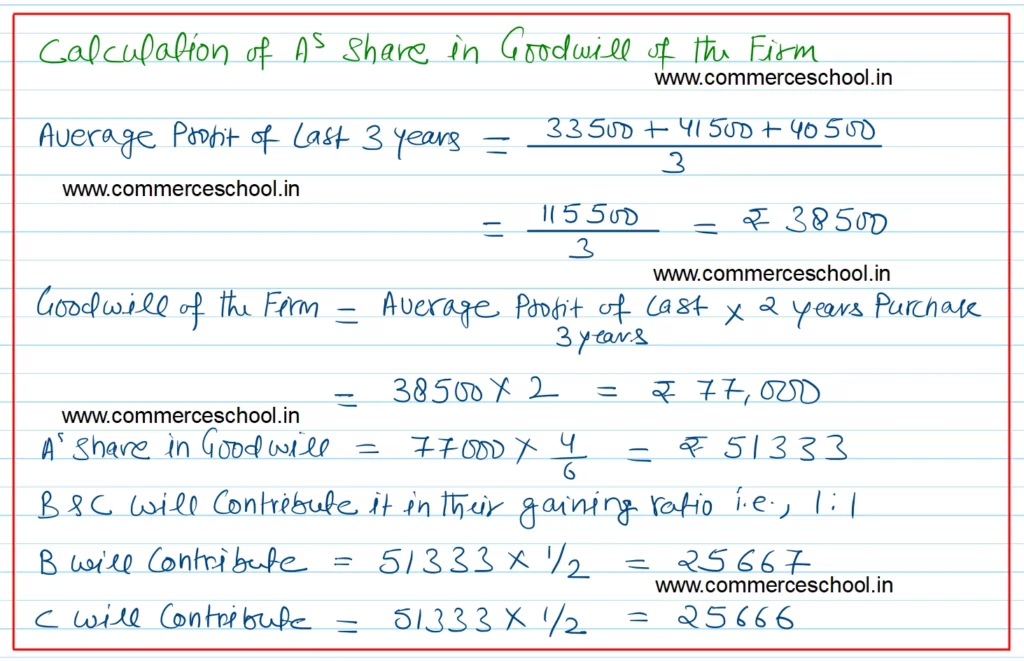 Calculation of A's Share in Goodwill of the Firm
www.commerceschool.in
Average Profit of Last 3 years = 33500 + 41500 + 40500 / 3
www.commerceschool.in
= 115500 / 3 = ₹ 38500
www.commerceschool.in
Goodwill of the Firm = Average Profit of Last 3 years × 2 years Purchase
= 38500 × 2 = ₹ 77,000
www.commerceschool.in
A's Share in Goodwill = 77000 × 4/6 = ₹ 51333
B & C will Contribute it in their gaining ratio i.e., 1:1
B will Contribute = 51333 × 1/2 = 25667
www.commerceschool.in
C will Contribute = 51333 × 1/2 = 25666